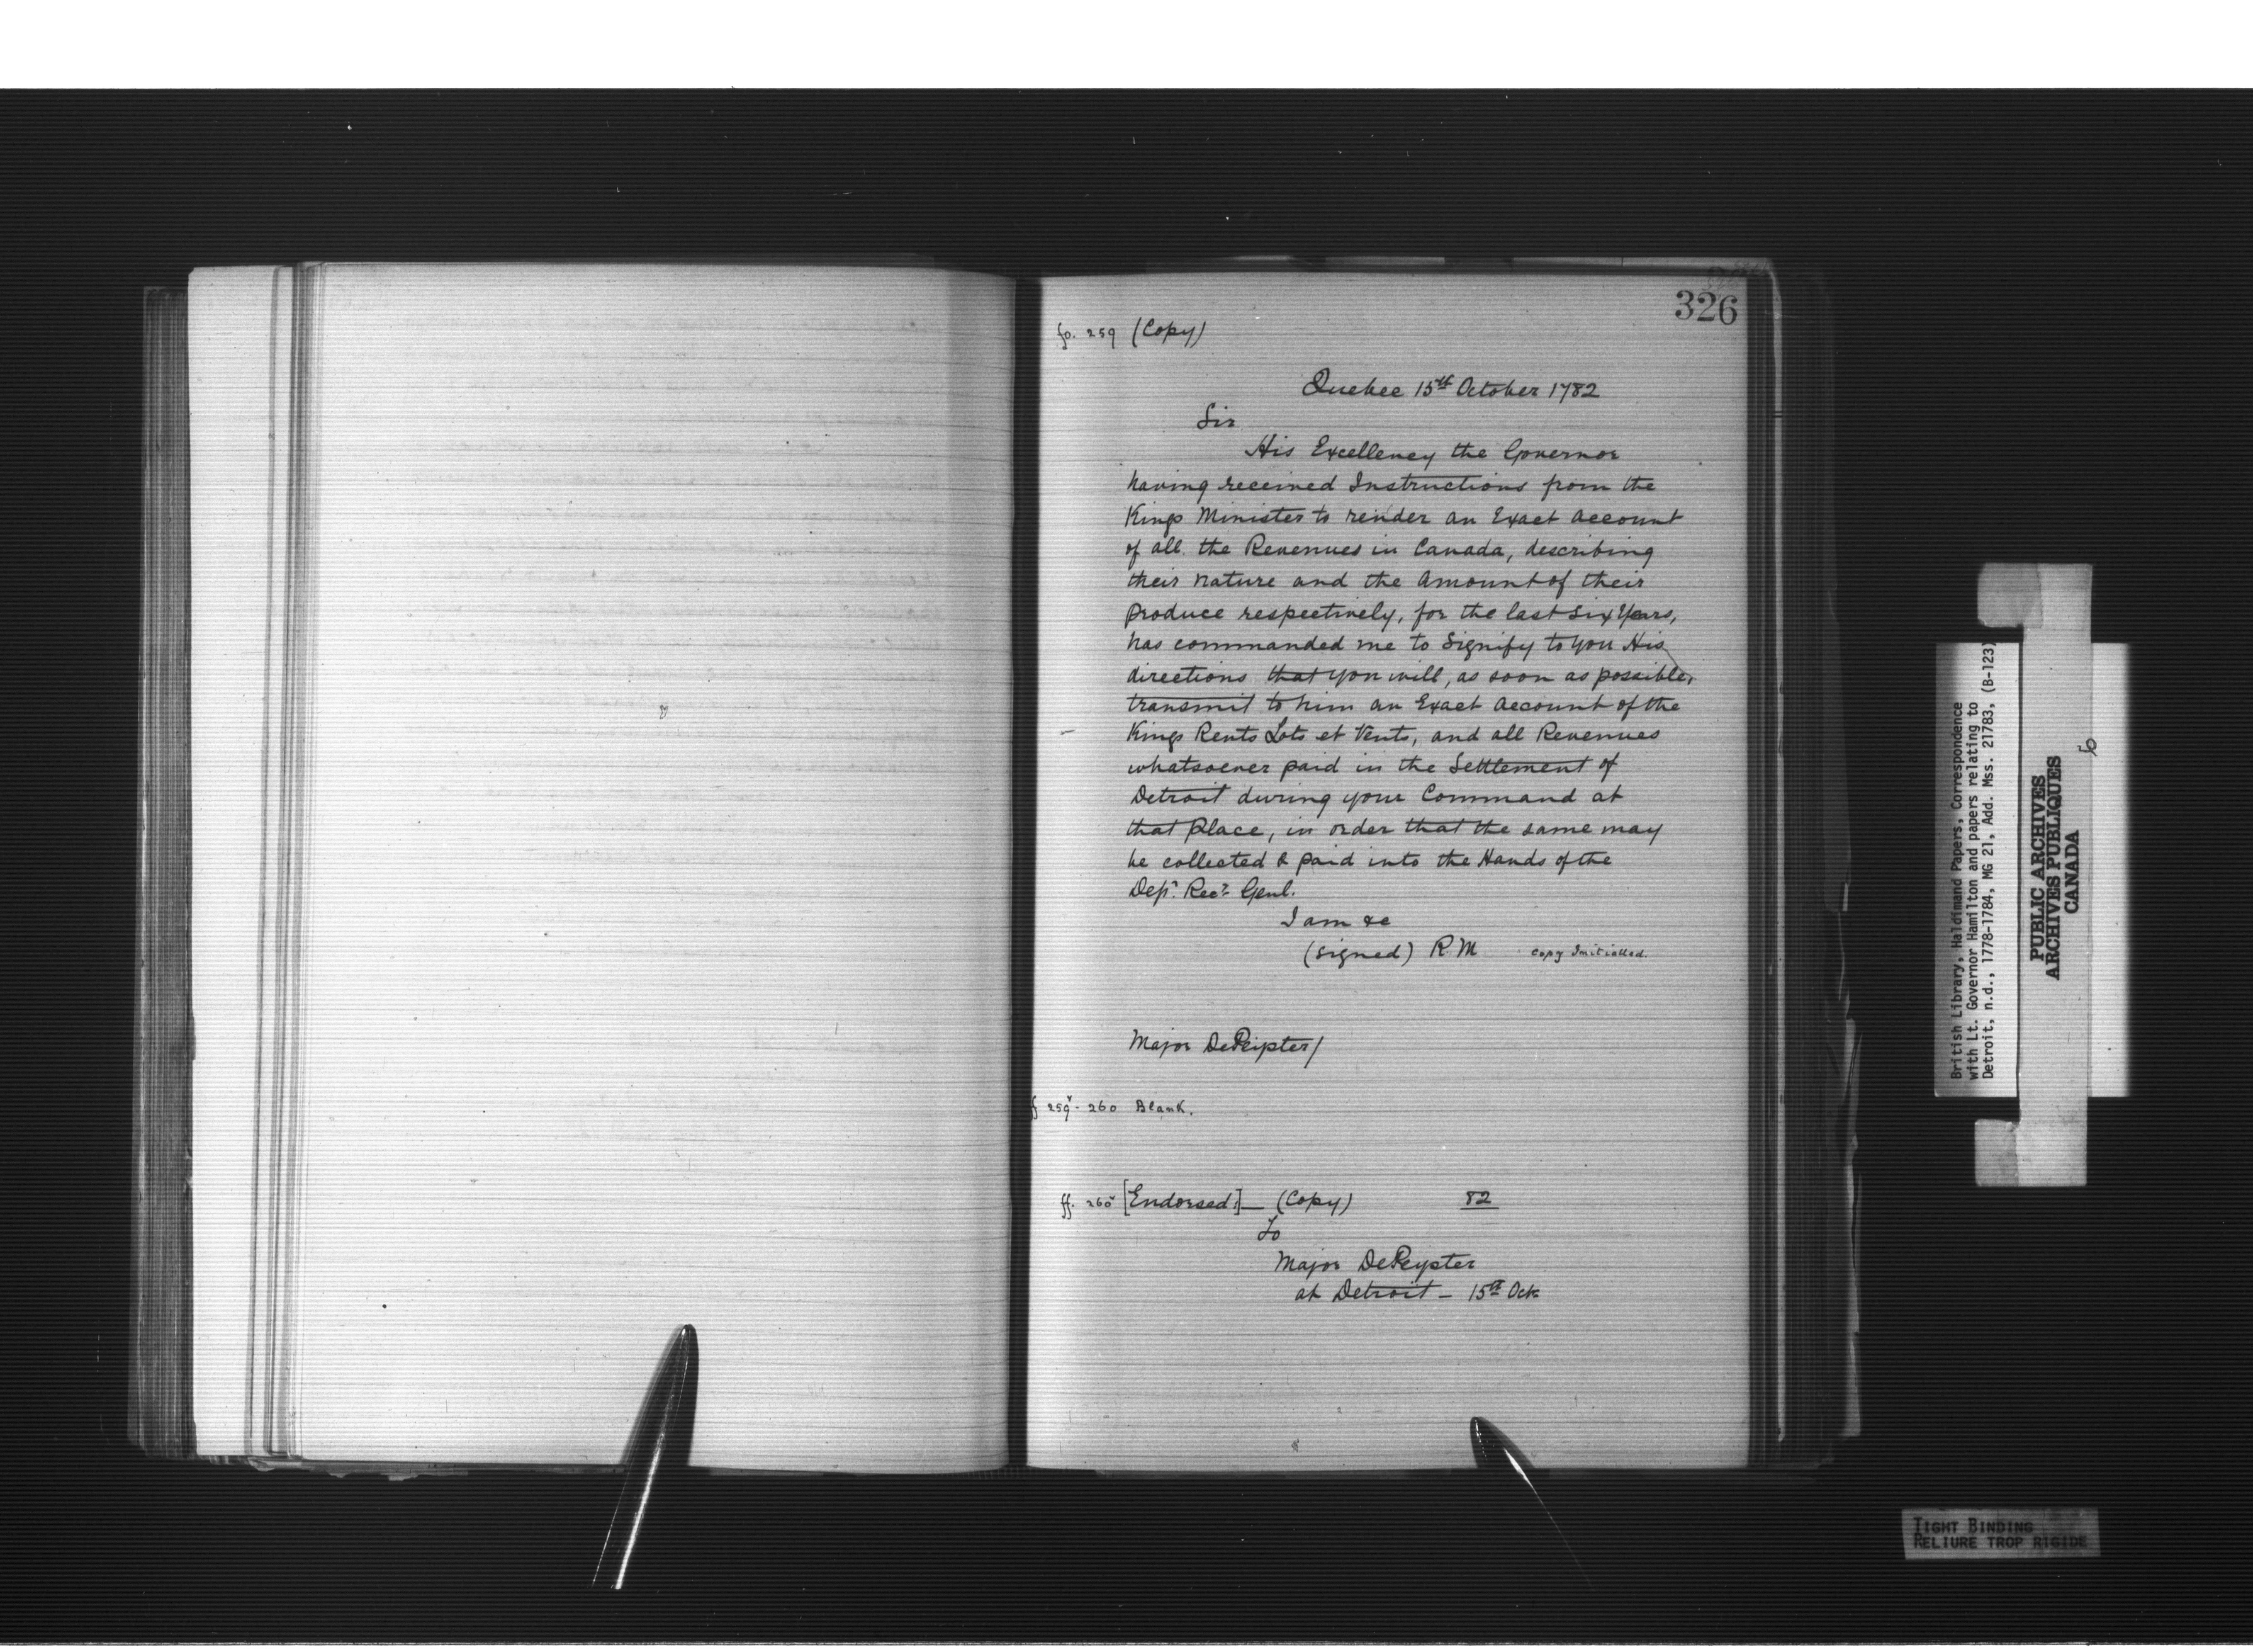 326
fo. 259 (Copy)
Quebec 15th October 1782
Sir
His Excellency the Governor
having received Instructions from the
Kings Minister to render an Exact Account
of all the Revenues in Canada, describing
their nature and the Amount of their
produce respectively, for the last six Years,
has commanded me to Signify to you His
directions that you will, as soon as possible,
transmit to him an Exact Account of the
Kings Rents Lots et Vents, and all Revenues
whatsoever paid in the Settlement of
Detroit during your Command at
that Place, in order that the same may
be collected & paid into the Hands of the
Depy. Recr. Genl.
I am &c
(signed) R. M copy Initialled.
Major DePeipter/
f 259v - 260 Blank.
ff. 260v [Endorsed.] — (Copy) 82
To
Major DePeyster
at Detroit — 15th Oct.
British Library, Haldimand Papers, Correspondence
with Lt. Governor Hamilton and papers relating to
Detroit, n.d., 1778-1784, MG 21, Add. Mss. 21783, (B-123)
PUBLIC ARCHIVES
ARCHIVES PUBLIQUES
CANADA
TIGHT BINDING
RELIURE TROP RIGIDE